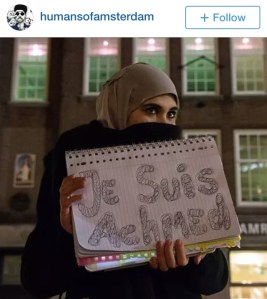 humansofamsterdam
+ Follow
JE SUiS
ACHMED